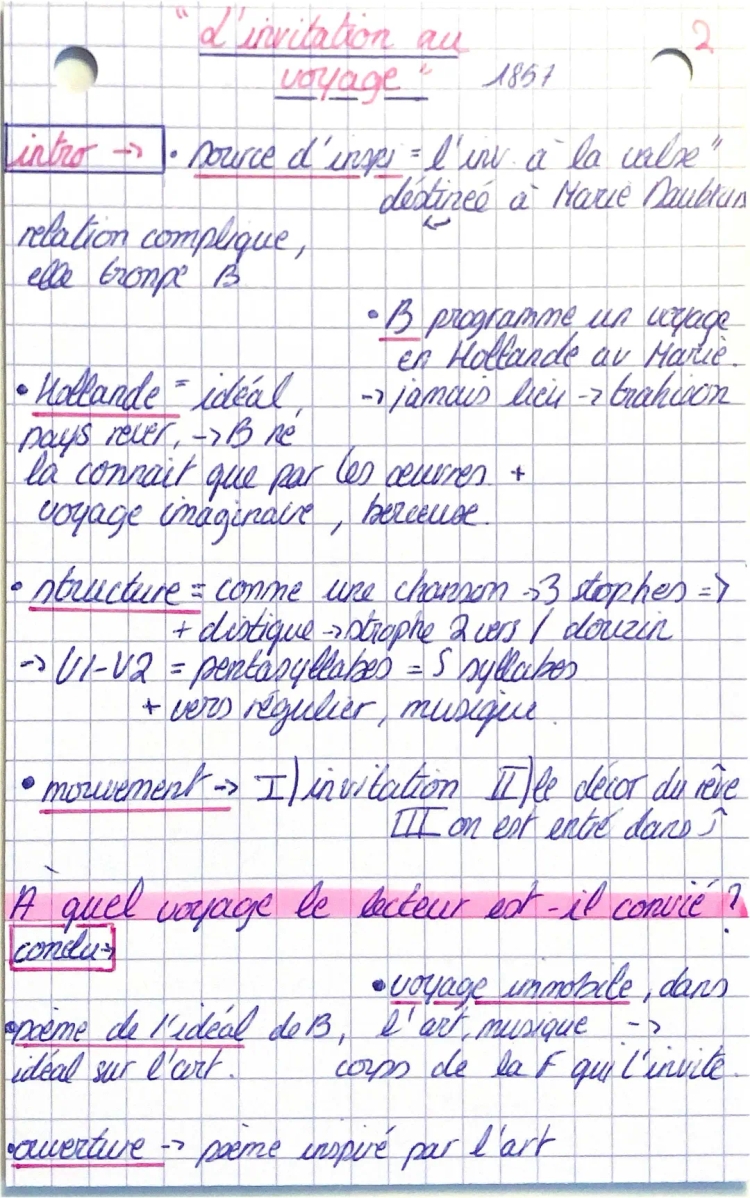 "L'invitation au
voyage" 1857
2
intro → • source d'inspi = l'inv. à la valse"
déstineé à Marie Daubrun
relation complique,
elle trompe B
• B programme un voyage
en Hollande av Marie.
→ jamais lieu → trahison
• Hollande = idéal,
pays rever, → B ne
la connait que par les œuvres +
voyage imaginaire, berceuse.
• structure = comme une chanson → 3 stophes =>
+ distique → strophe 2 vers / douzin
→ V1-V2 = pentasyllabes = 5 syllabes
+ vers régulier, musique.
• mouvement → I) invitation II) le décor du rêve
III on est entré dans ↑
À quel voyage le lecteur est-il convié ?
conclu→
• voyage immobile, dans
l'art, musique →
corps de la F qui l'invite.
• poème de l'idéal de B,
idéal sur l'art.
• ouverture → poème inspiré par l'art